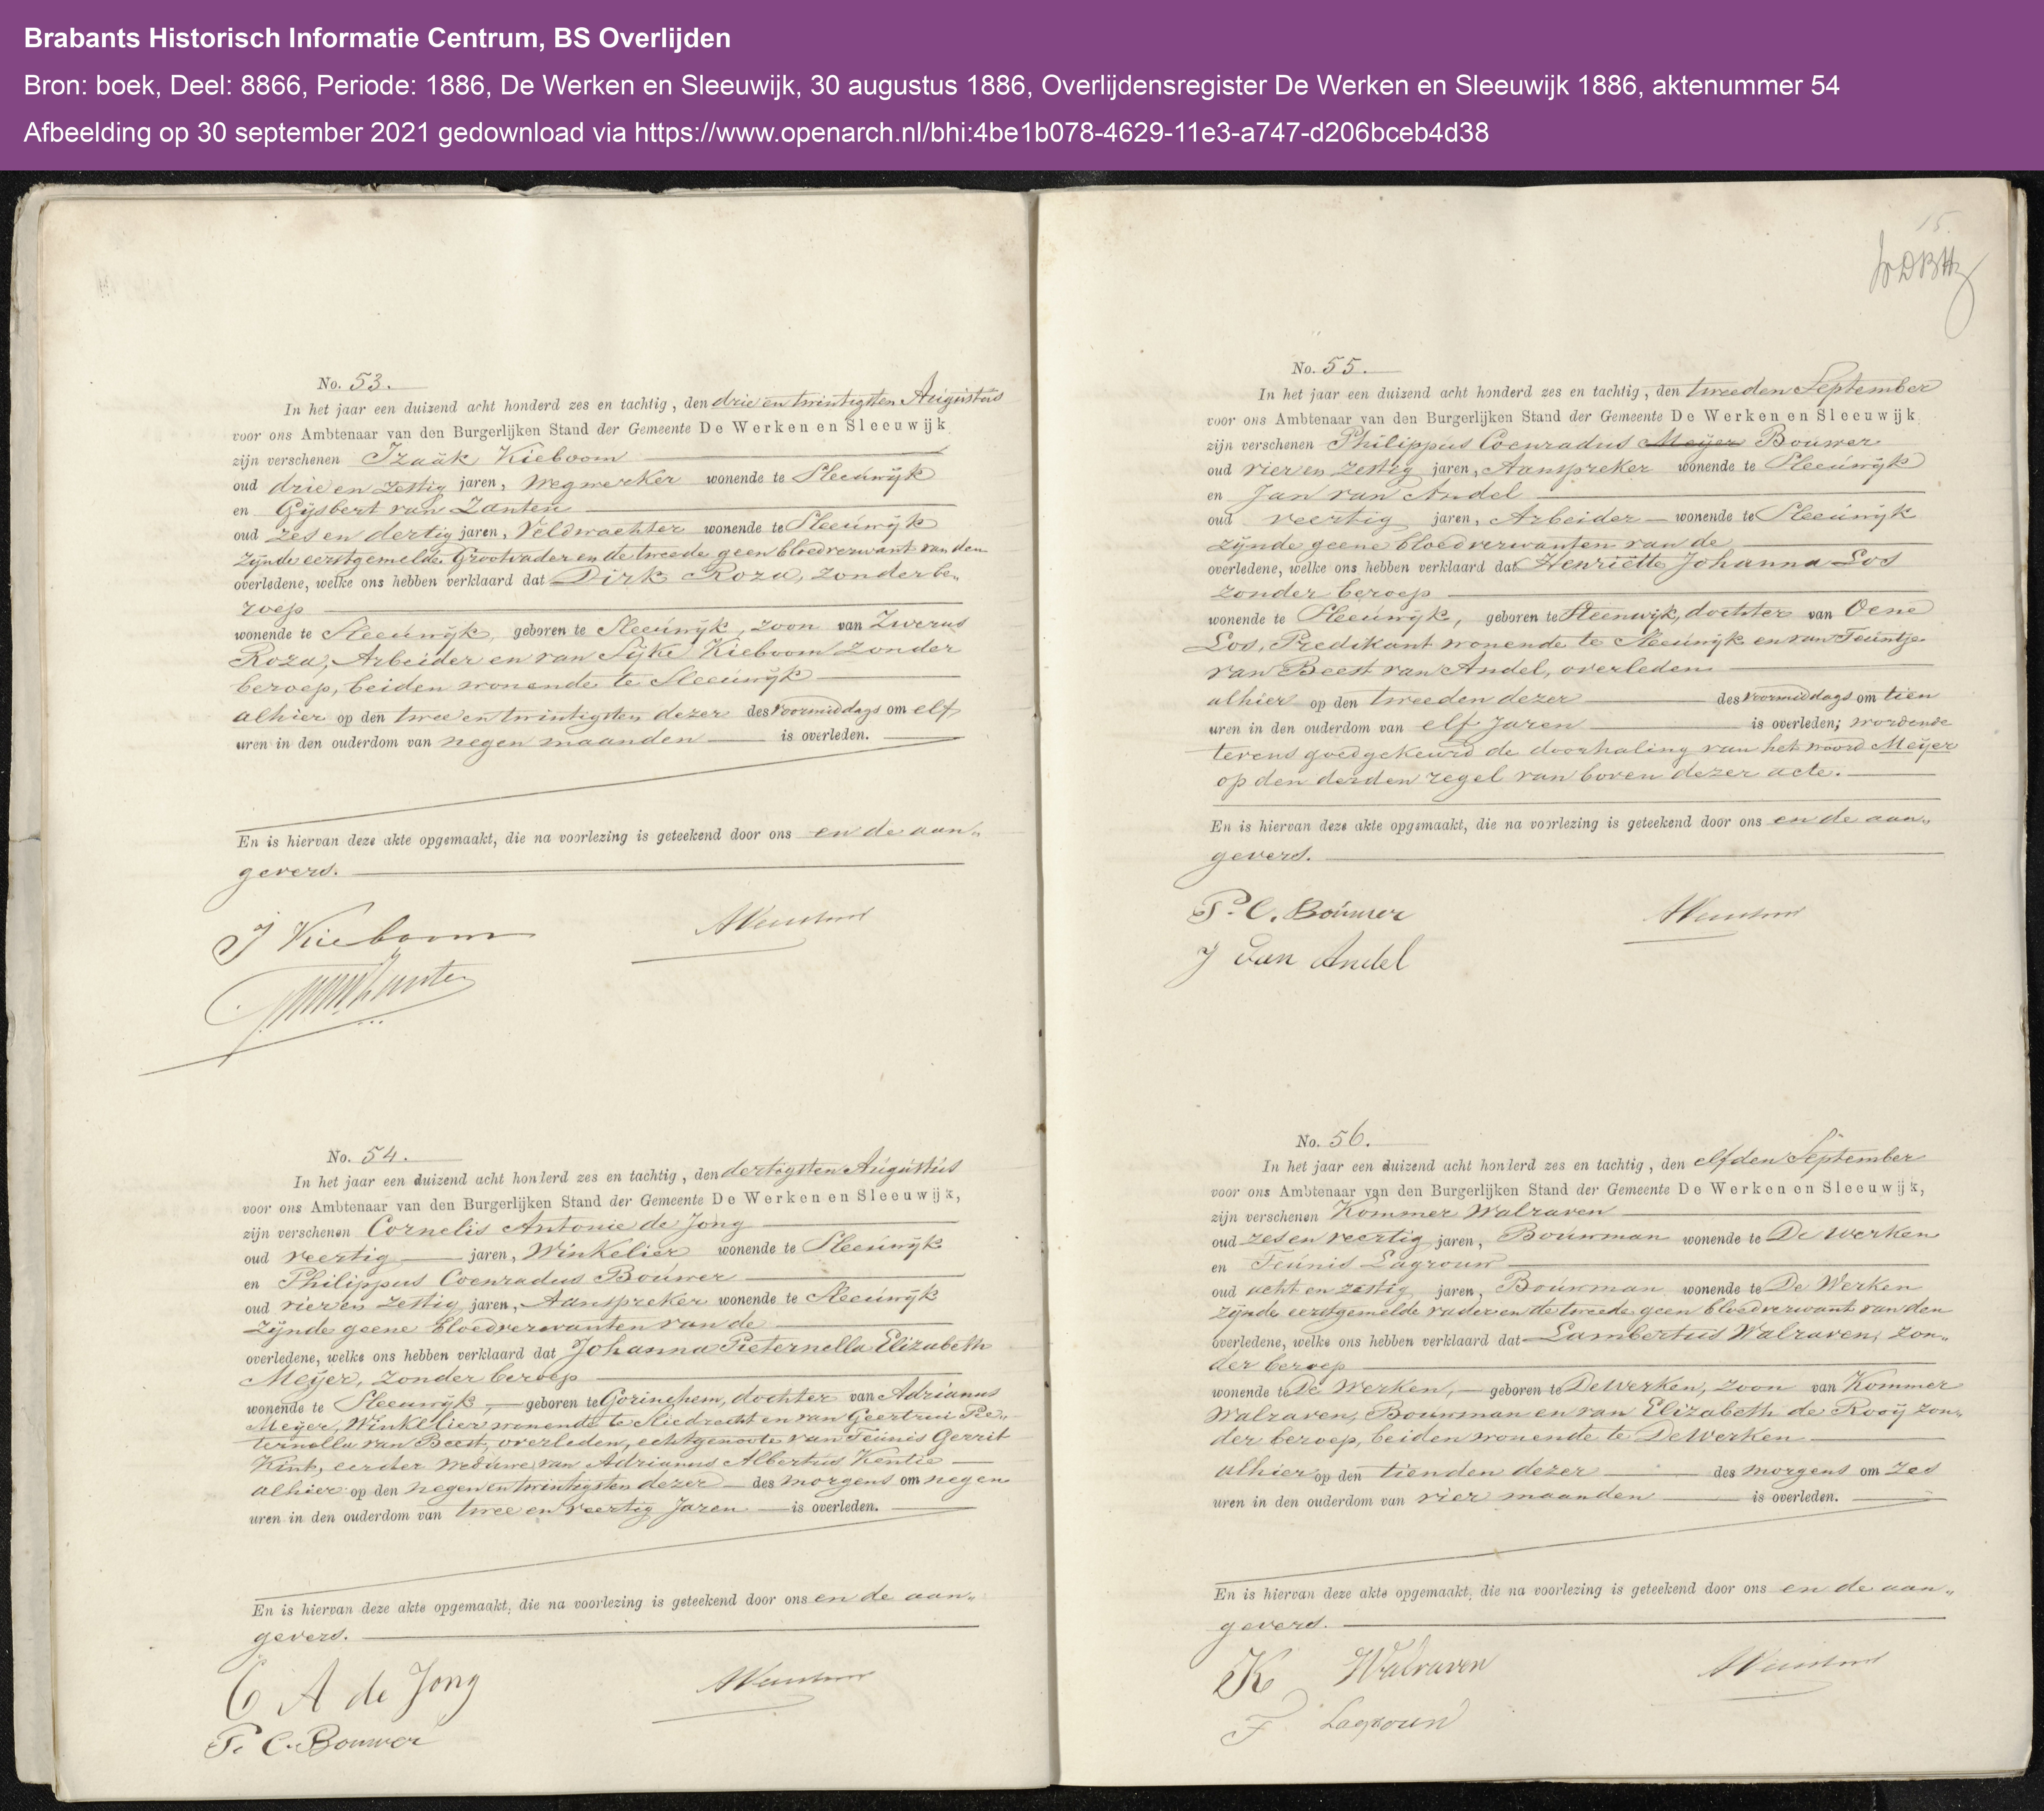 Brabants Historisch Informatie Centrum, BS Overlijden
Bron: boek, Deel: 8866, Periode: 1886, De Werken en Sleeuwijk, 30 augustus 1886, Overlijdensregister De Werken en Sleeuwijk 1886, aktenummer 54
Afbeelding op 30 september 2021 gedownload via https://www.openarch.nl/bhi:4be1b078-4629-11e3-a747-d206bceb4d38
No. 53.
In het jaar een duizend acht honderd zes en tachtig, den drie en twintigsten Augustus
voor ons Ambtenaar van den Burgerlijken Stand der Gemeente De Werken en Sleeuwijk,
zijn verschenen Izaäk Kieboom
oud drie en zestig jaren, Wegwerker wonende te Sleeuwijk
en Gijsbert van Zanten
oud zes en dertig jaren, Veldwachter wonende te Sleeuwijk
zijnde eerstgemelde Grootvader en de tweede geen bloedverwant van den
overledene, welke ons hebben verklaard dat Dirk Roza, zonder be„
roep
wonende te Sleeuwijk, geboren te Sleeuwijk, zoon van Zwerus
Roza, Arbeider en van Sijke Kieboom zonder
beroep, beiden wonende te Sleeuwijk
alhier op den twee en twintigsten dezer des voormiddags om elf
uren in den ouderdom van negen maanden is overleden.
En is hiervan deze akte opgemaakt, die na voorlezing is geteekend door ons en de aan„
gevers.
J Kieboom
No. 54.
In het jaar een duizend acht honderd zes en tachtig, den dertigsten Augustus
voor ons Ambtenaar van den Burgerlijken Stand der Gemeente De Werken en Sleeuwijk,
zijn verschenen Cornelis Antonie de Jong
oud veertig jaren, Winkelier wonende te Sleeuwijk
en Philippus Coenradus Bouwer
oud vier en zestig jaren, Aanspreker wonende te Sleeuwijk
zijnde geene bloedverwanten van de
overledene, welke ons hebben verklaard dat Johanna Pieternella Elizabeth
Meijer, zonder beroep
wonende te Sleeuwijk, geboren te Gorinchem, dochter van Adrianus
Meijer, Winkelier wonende te Sliedrecht en van Geertrui Pie„
ternella van Beest, overleden, echtgenoote van Teunis Gerrit
Kink, eerder weduwe van Adrianus Albertus Kentie
alhier op den negen en twintigsten dezer des morgens om negen
uren in den ouderdom van twee en veertig Jaren is overleden.
En is hiervan deze akte opgemaakt, die na voorlezing is geteekend door ons en de aan„
gevers.
C A de Jong
P. C. Bouwer
15.
No. 55.
In het jaar een duizend acht honderd zes en tachtig, den tweeden September
voor ons Ambtenaar van den Burgerlijken Stand der Gemeente De Werken en Sleeuwijk
zijn verschenen Philippus Coenradus Meijer Bouwer
oud vier en zestig jaren, Aanspreker wonende te Sleeuwijk
en Jan van Andel
oud veertig jaren, Arbeider wonende te Sleeuwijk
zijnde geene bloedverwanten van de
overledene, welke ons hebben verklaard dat Henriëtte Johanna Los
zonder beroep
wonende te Sleeuwijk, geboren te Steenwijk, dochter van Oene
Los, Predikant wonende te Sleeuwijk en van Teuntje
van Beest van Andel, overleden
alhier op den tweeden dezer des voormiddags om tien
uren in den ouderdom van elf Jaren is overleden; wordende
tevens goedgekeurd de doorhaling van het woord Meijer
op den derden regel van boven dezer acte.
En is hiervan deze akte opgemaakt, die na voorlezing is geteekend door ons en de aan„
gevers.
P. C. Bouwer
J Van Andel
No. 56.
In het jaar een duizend acht honderd zes en tachtig, den elfden September
voor ons Ambtenaar van den Burgerlijken Stand der Gemeente De Werken en Sleeuwijk,
zijn verschenen Kommer Walraven
oud zes en veertig jaren, Bouwman wonende te De Werken
en Teunis Lagrouw
oud acht en zestig jaren, Bouwman wonende te De Werken
zijnde eerstgemelde vader en de tweede geen bloedverwant van den
overledene, welke ons hebben verklaard dat Lambertus Walraven, zon„
der beroep
wonende te De Werken, geboren te De Werken, zoon van Kommer
Walraven, Bouwman en van Elizabeth de Rooij zon„
der beroep, beiden wonende te De Werken
alhier op den tienden dezer des morgens om zes
uren in den ouderdom van vier maanden is overleden.
En is hiervan deze akte opgemaakt, die na voorlezing is geteekend door ons en de aan„
gevers.
K Walraven
F Lagrouw